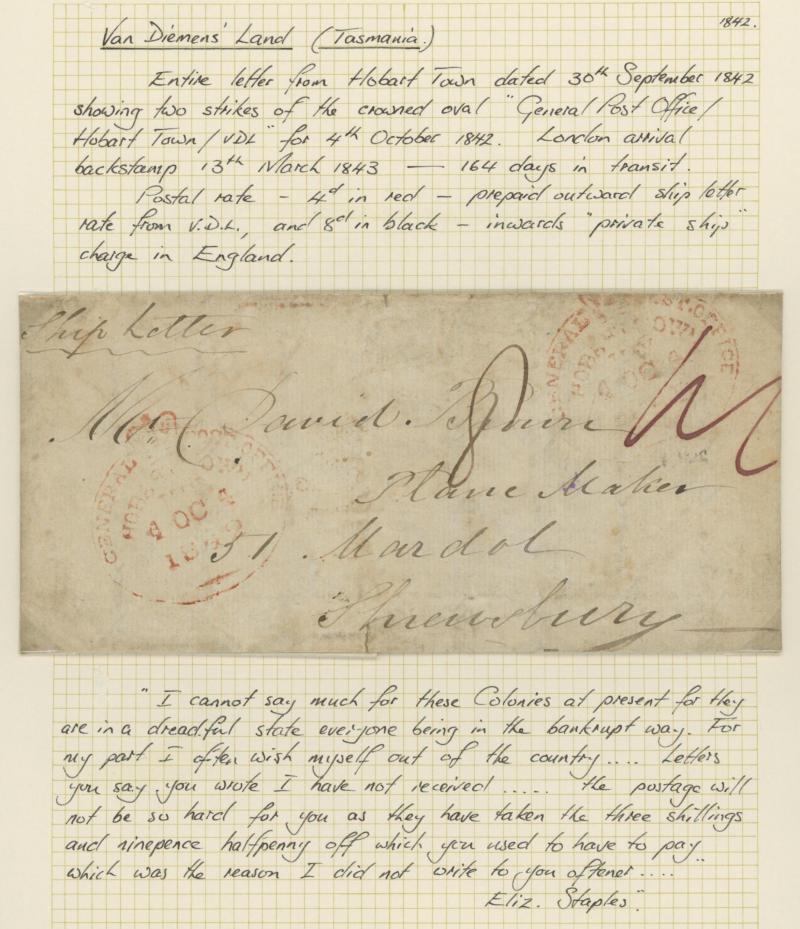 1842.
Van Diemens' Land (Tasmania.)
Entire letter from Hobart Town dated 30th September 1842
showing two strikes of the crowned oval "General Post Office/
Hobart Town/VDL" for 4th October 1842. London arrival
backstamp 13th March 1843 — 164 days in transit.
Postal rate - 4d in red - prepaid outward ship letter
rate from V.D.L., and 8d in black - inwards "private ship"
charge in England.
Ship Letter
GENERAL POST OFFICE
HOBART TOWN
4 OC 4
8
Mr David Brown
Plane Maker
GENERAL POST OFFICE
HOBART TOWN
4 OC 4
1842
51 Mardol
Shrewsbury
"I cannot say much for these Colonies at present for they
are in a dreadful state everyone being in the bankrupt way. For
my part I often wish myself out of the country.... Letters
you say you wrote I have not received ..... the postage will
not be so hard for you as they have taken the three shillings
and ninepence halfpenny off which you used to have to pay
which was the reason I did not write to you oftener...."
Eliz. Staples".